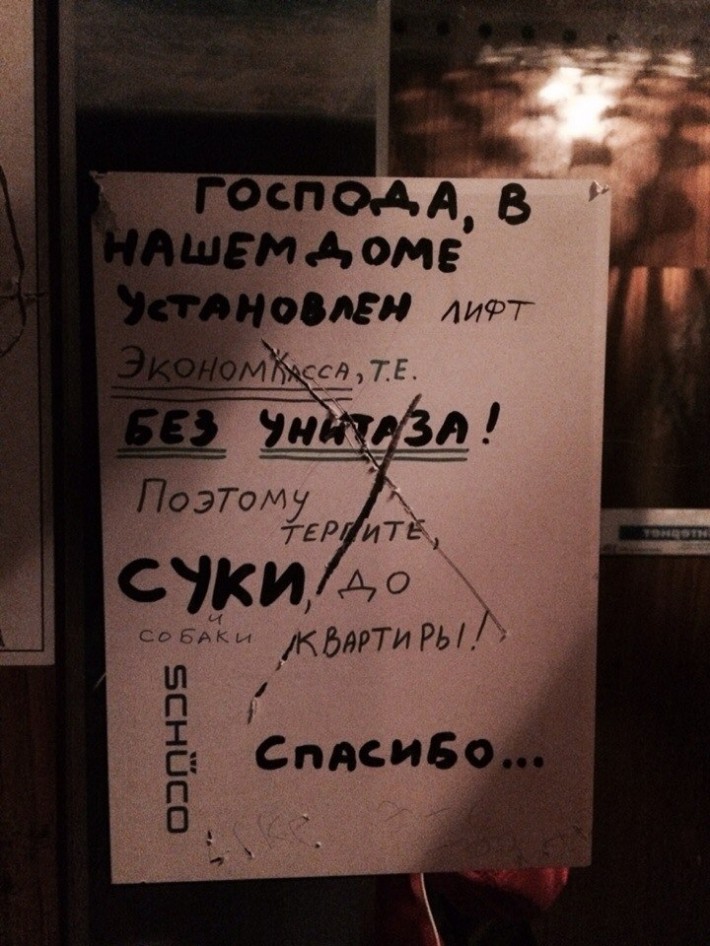 ГОСПОДА, В
НАШЕМ ДОМЕ
УСТАНОВЛЕН ЛИФТ
ЭКОНОМКАССА, Т.Е.
БЕЗ УНИТАЗА!
ПОЭТОМУ
ТЕРПИТЕ,
СУКИ, ДО
И
СОБАКИ КВАРТИРЫ!
SCHÜCO
СПАСИБО...